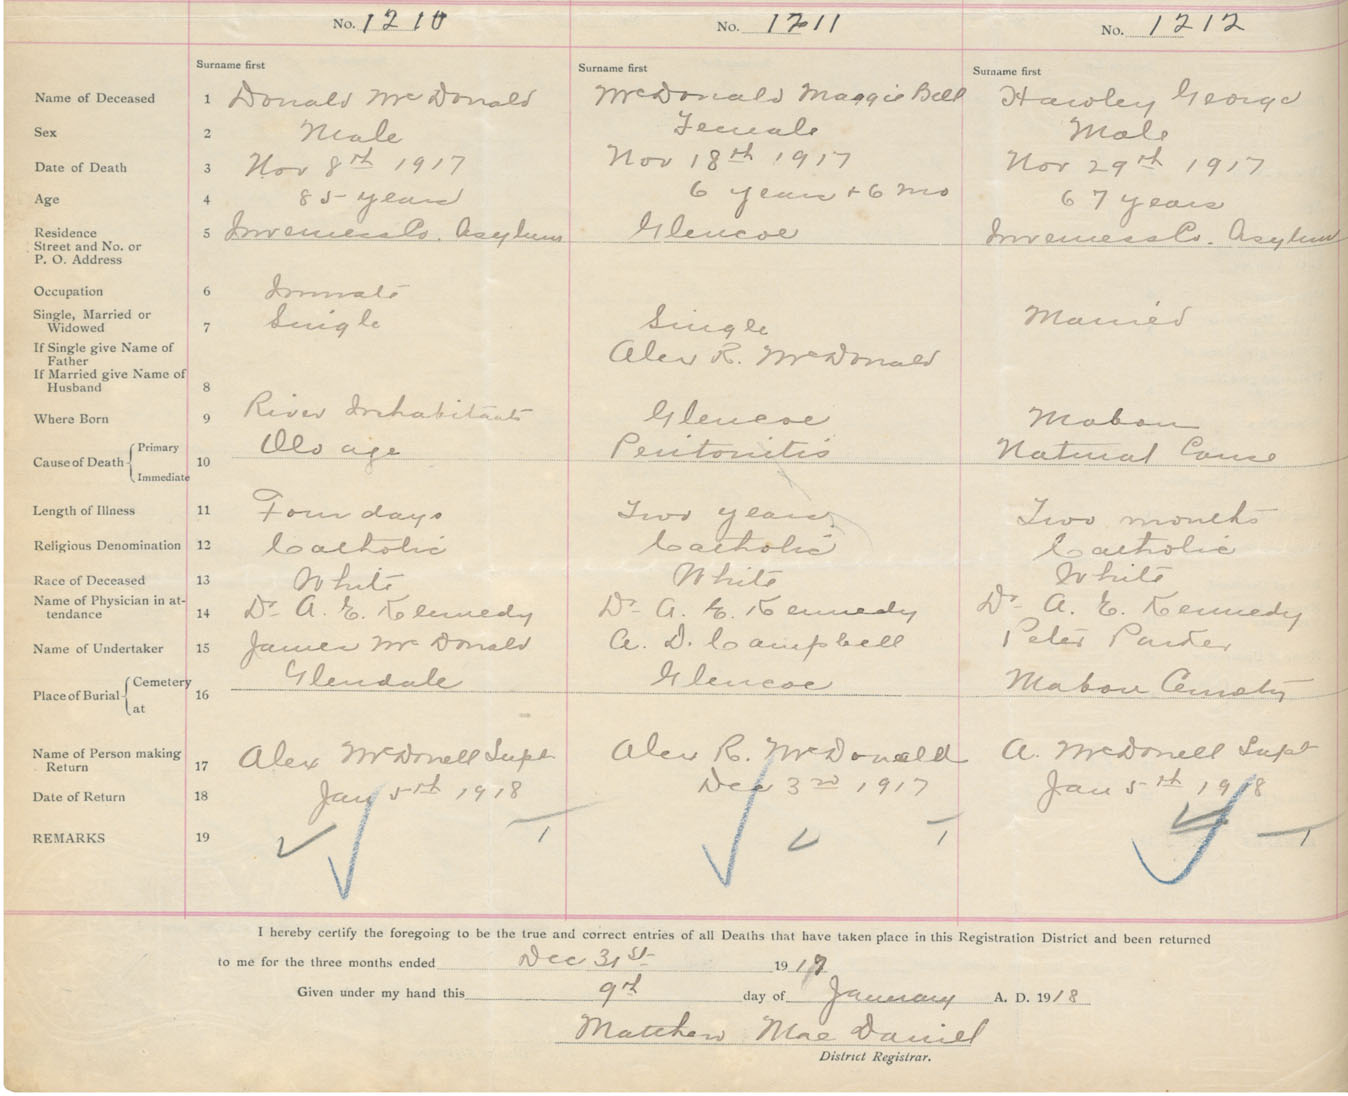 No. 1210 No. 1211 No. 1212
Surname first Surname first Surname first
Name of Deceased 1 Donald McDonald McDonald Maggie Bell Hawley George
Sex 2 Male Female Male
Date of Death 3 Nov 8th 1917 Nov 18th 1917 Nov 29th 1917
Age 4 85 years 6 years + 6 mo 67 years
Residence 5 Inverness Co. Asylum Glencoe Inverness Co. Asylum
Street and No. or
P. O. Address
Occupation 6 Inmate
Single, Married or
Widowed 7 Single Single Married
If Single give Name of
Father Alex R. McDonald
If Married give Name of
Husband 8
Where Born 9 River Inhabitants Glencoe Mabou
Cause of Death Primary Old age Peritonitis Natural Cause
10
Immediate
Length of Illness 11 Four days Two years Two months
Religious Denomination 12 Catholic Catholic Catholic
Race of Deceased 13 White White White
Name of Physician in at-
tendance 14 Dr A. E. Kennedy Dr A. E. Kennedy Dr A. E. Kennedy
Name of Undertaker 15 James McDonald A. D. Campbell Peter
Place of Burial Cemetery 16 Glendale Glencoe Mabou Cemetry
at
Name of Person making
Return 17 Alex McDonell Supt Alex R. McDonald A. McDonell Supt
Date of Return 18 Jan 5th 1918 Dec 3rd 1917 Jan 5th 1918
REMARKS 19 1 1 1
I hereby certify the foregoing to be the true and correct entries of all Deaths that have taken place in this Registration District and been returned
to me for the three months ended Dec 31st 1917
Given under my hand this 9th day of January A. D. 1918
Matthew Mac Daniel
District Registrar.